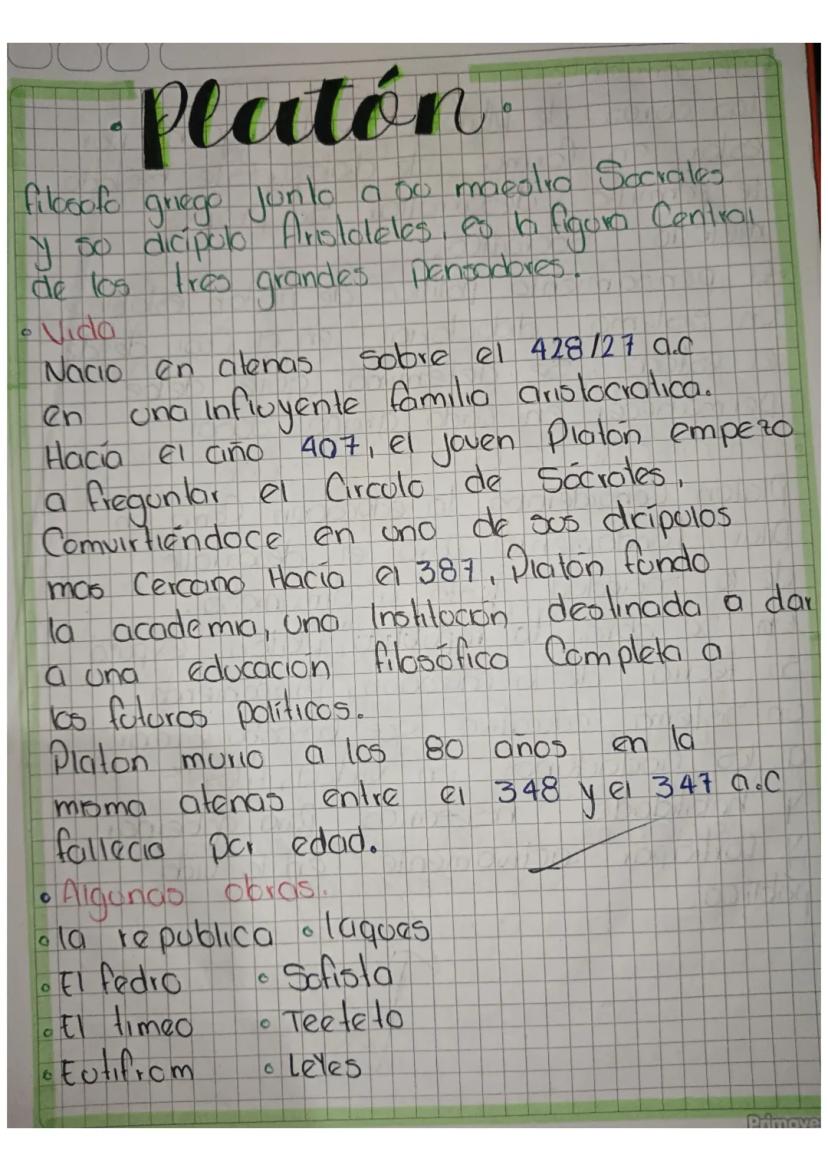 · Platón ·
filosofo griego junto a su maestro Socrates
y su dicipulo Aristoteles, es la figura Central
de los tres grandes pensadores.
• Vida
Nacio en atenas sobre el 428/27 a.c
en una influyente familia aristocratica.
Hacia el año 407, el joven Platón empezo
a freguntar el Circulo de Sócrates,
Comvirtiéndoce en uno de sus dicípulos
mas Cercano Hacia el 387, Platón fundo
la academia, una Institución destinada a dar
a una educación filosófica Completa a
los futuros políticos.
Platon murio a los 80 años en la
misma atenas entre el 348 y el 347 a.C
fallecio por edad.
• Algunas obras.
• la republica • laques
• El fedro • Sofista
• El timeo • Teeteto
• Eutifrom • Leyes
Primave